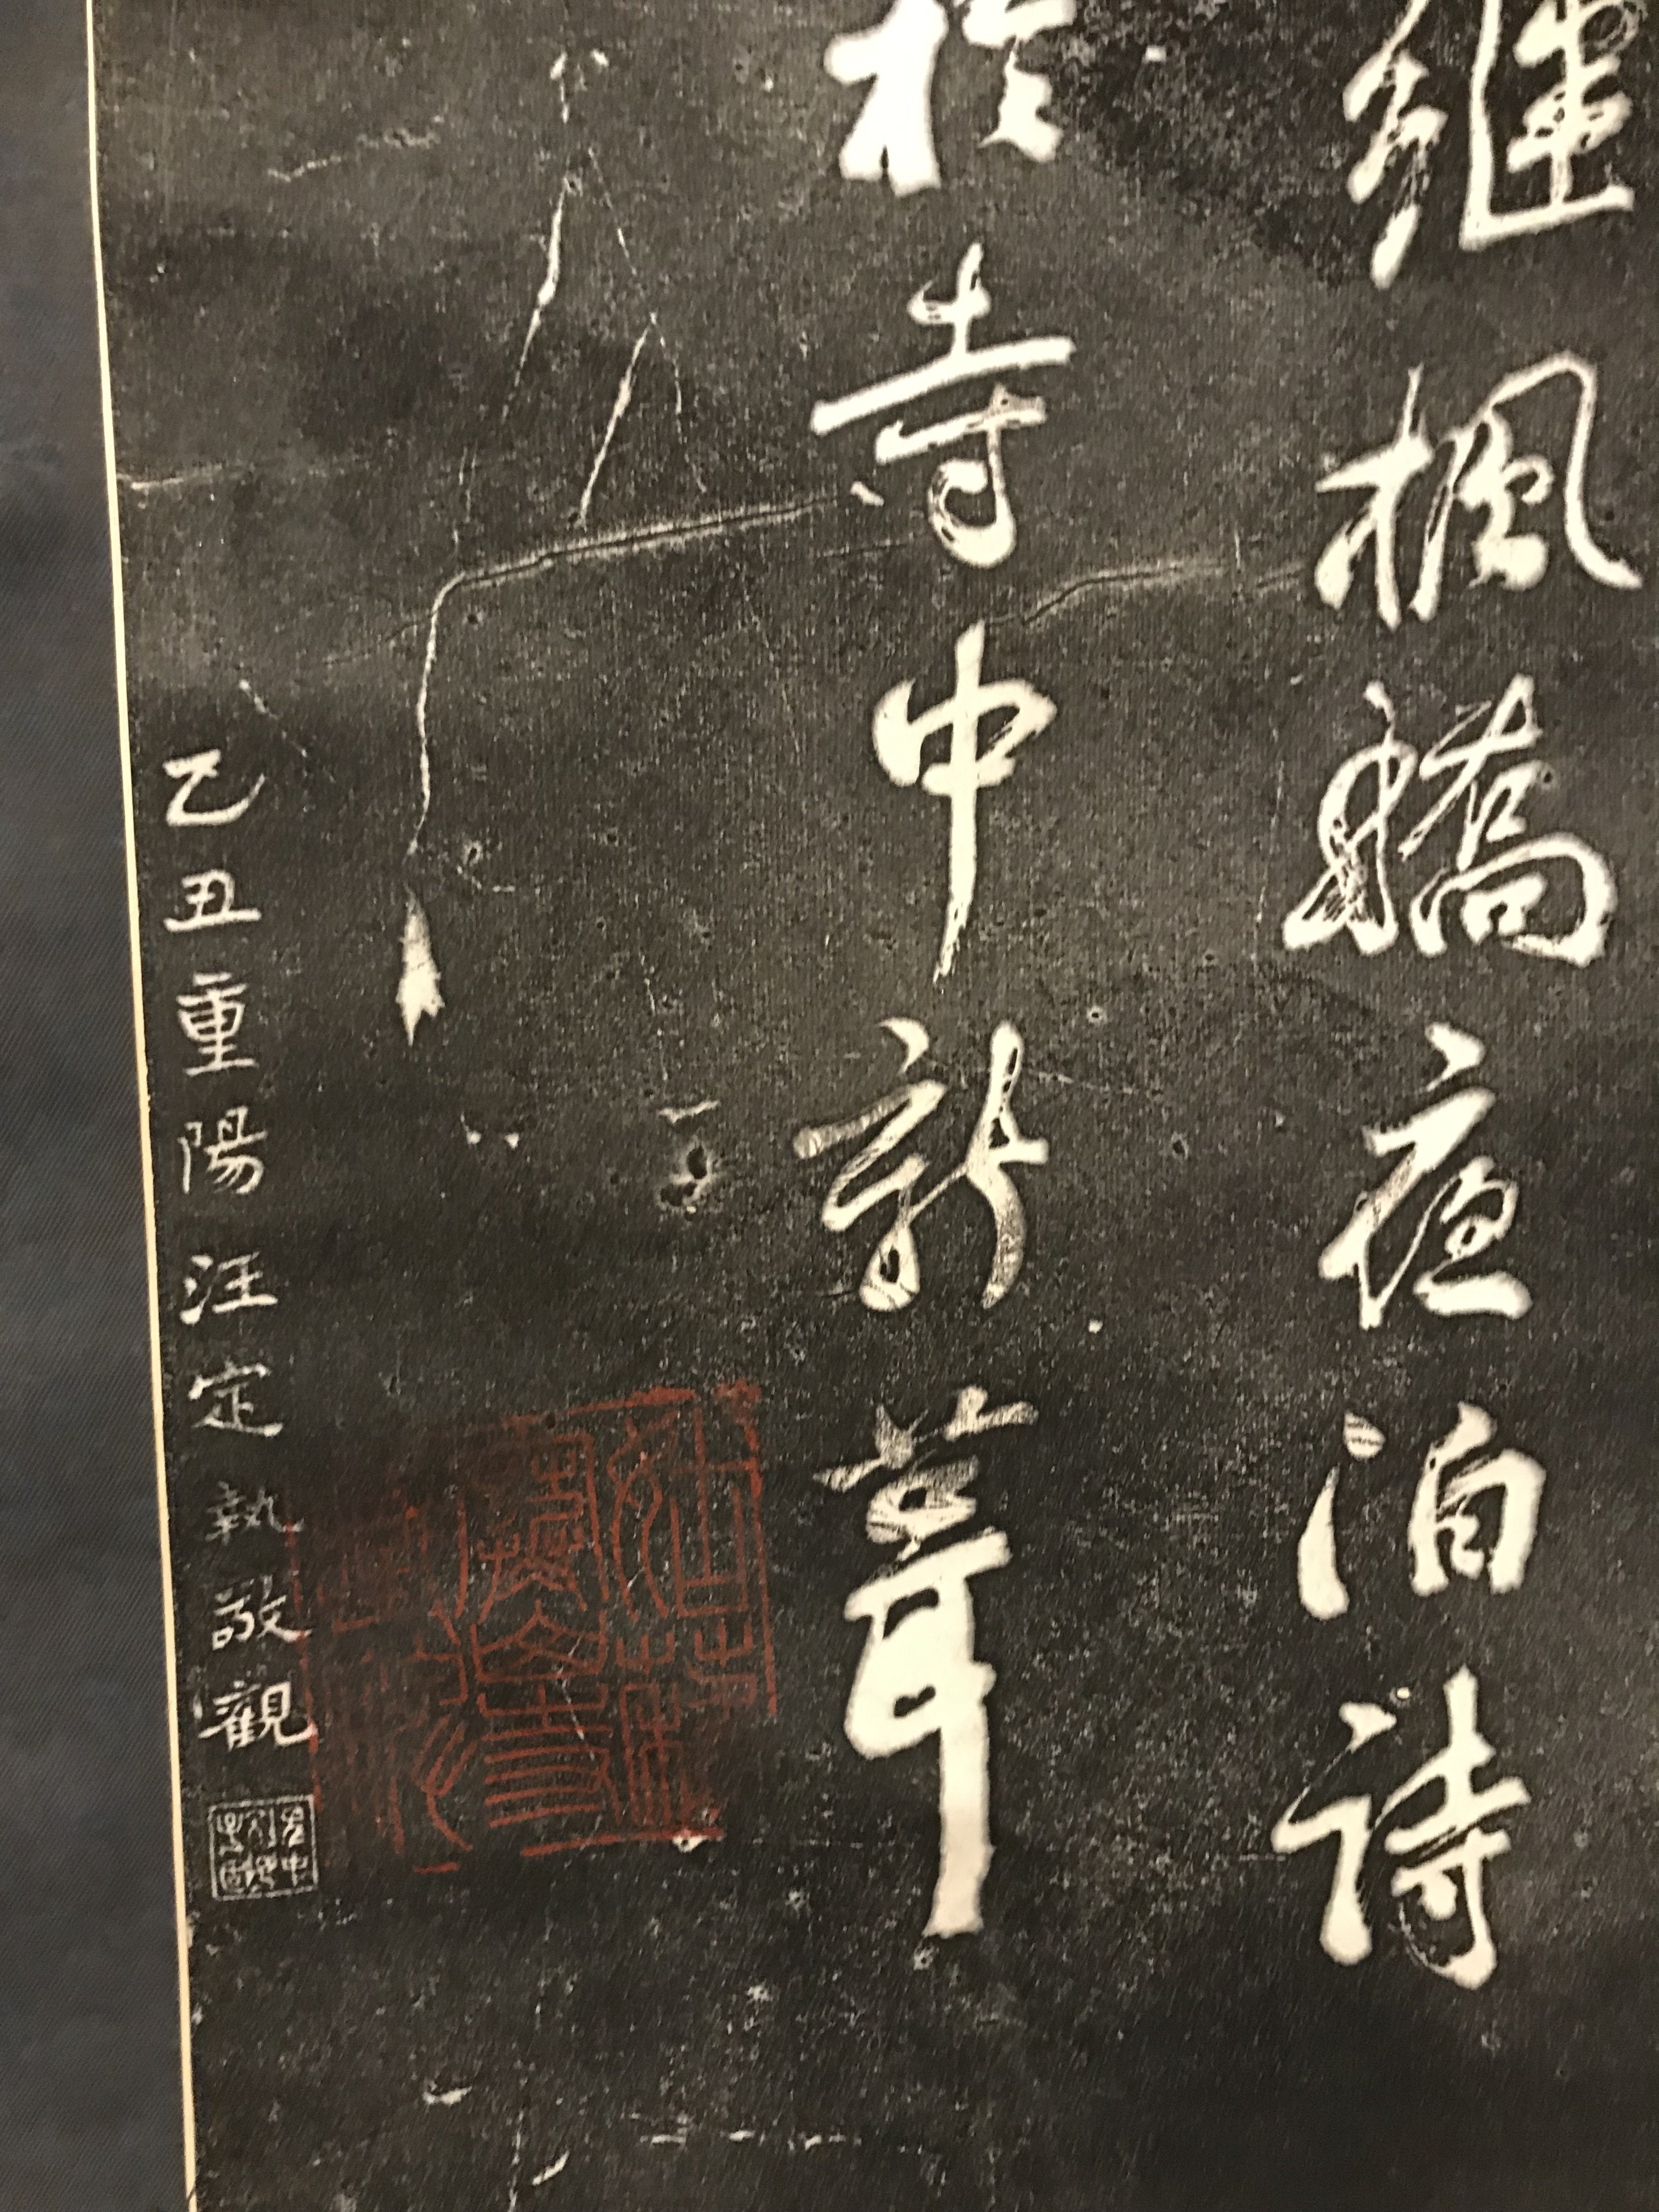 繼楓橋夜泊詩
於寺中新葺
乙丑重陽汪定執敬觀